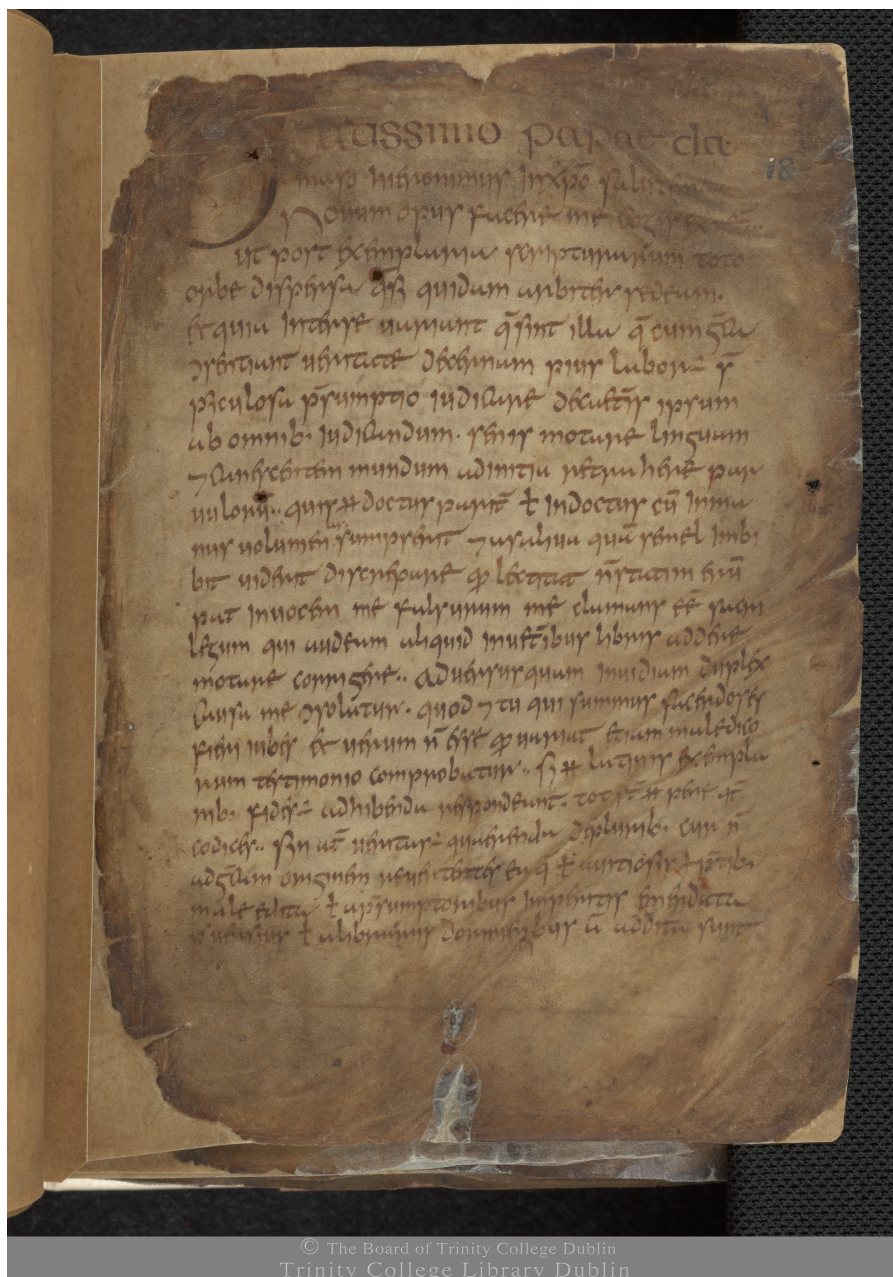 atissimo papae da
maso hieronimus inxp̄o salutem
Nouum opus facere me cogis ex uet̄e
ut post exemplaria scripturarum toto
orbe dispersa q̄si quidam arbiter sedeam.
et quia interse uariant q̄ sint illa q̄ cum gr̄ca
ɔsentiant ueritate decernam pius labor ÷ s̄
p̄iculosa p̄sumptio iudicare decaet̄is ipsum
ab omnib: iudicandum. senis motare linguam
⁊ canescentem mundum adinitia retrahere par
uulorū.. quis ħ doctus parit̄ ł indoctus cū inma
nus uolumen sumpserit ⁊ asaliua quā semel inbi
bit uiderit discrepare ꝙ lectitat n̄ statim erū
pat inuocem me falsarium me clamans eē sacri
legum qui audeam aliquid inuet̄ibus libris addere
motare corrigere.. Aduersusquam inuidiam duplex
causa me ɔsolatur. quod ⁊ tu qui summus sacerdos es
fieri iubes et uerum n̄ esse ꝙ uariat etiam maledico
rum testimonio comprobatur.. si ħ latinis exempla
rib: fides ÷ adhibenda respondeant. tot s̄t ħ pene q̄t
codices.. sin aū ueritas ÷ quaerenda depluribus cur n̄
adgr̄cam originem reuertentes ea q̄ ł auitiosis int̄p̄tib:
male edita ł ap̄sumptoribus imperitis emendata
ł alibrariis dormitantibus aū addita sunt
18
© The Board of Trinity College Dublin
Trinity College Library Dublin